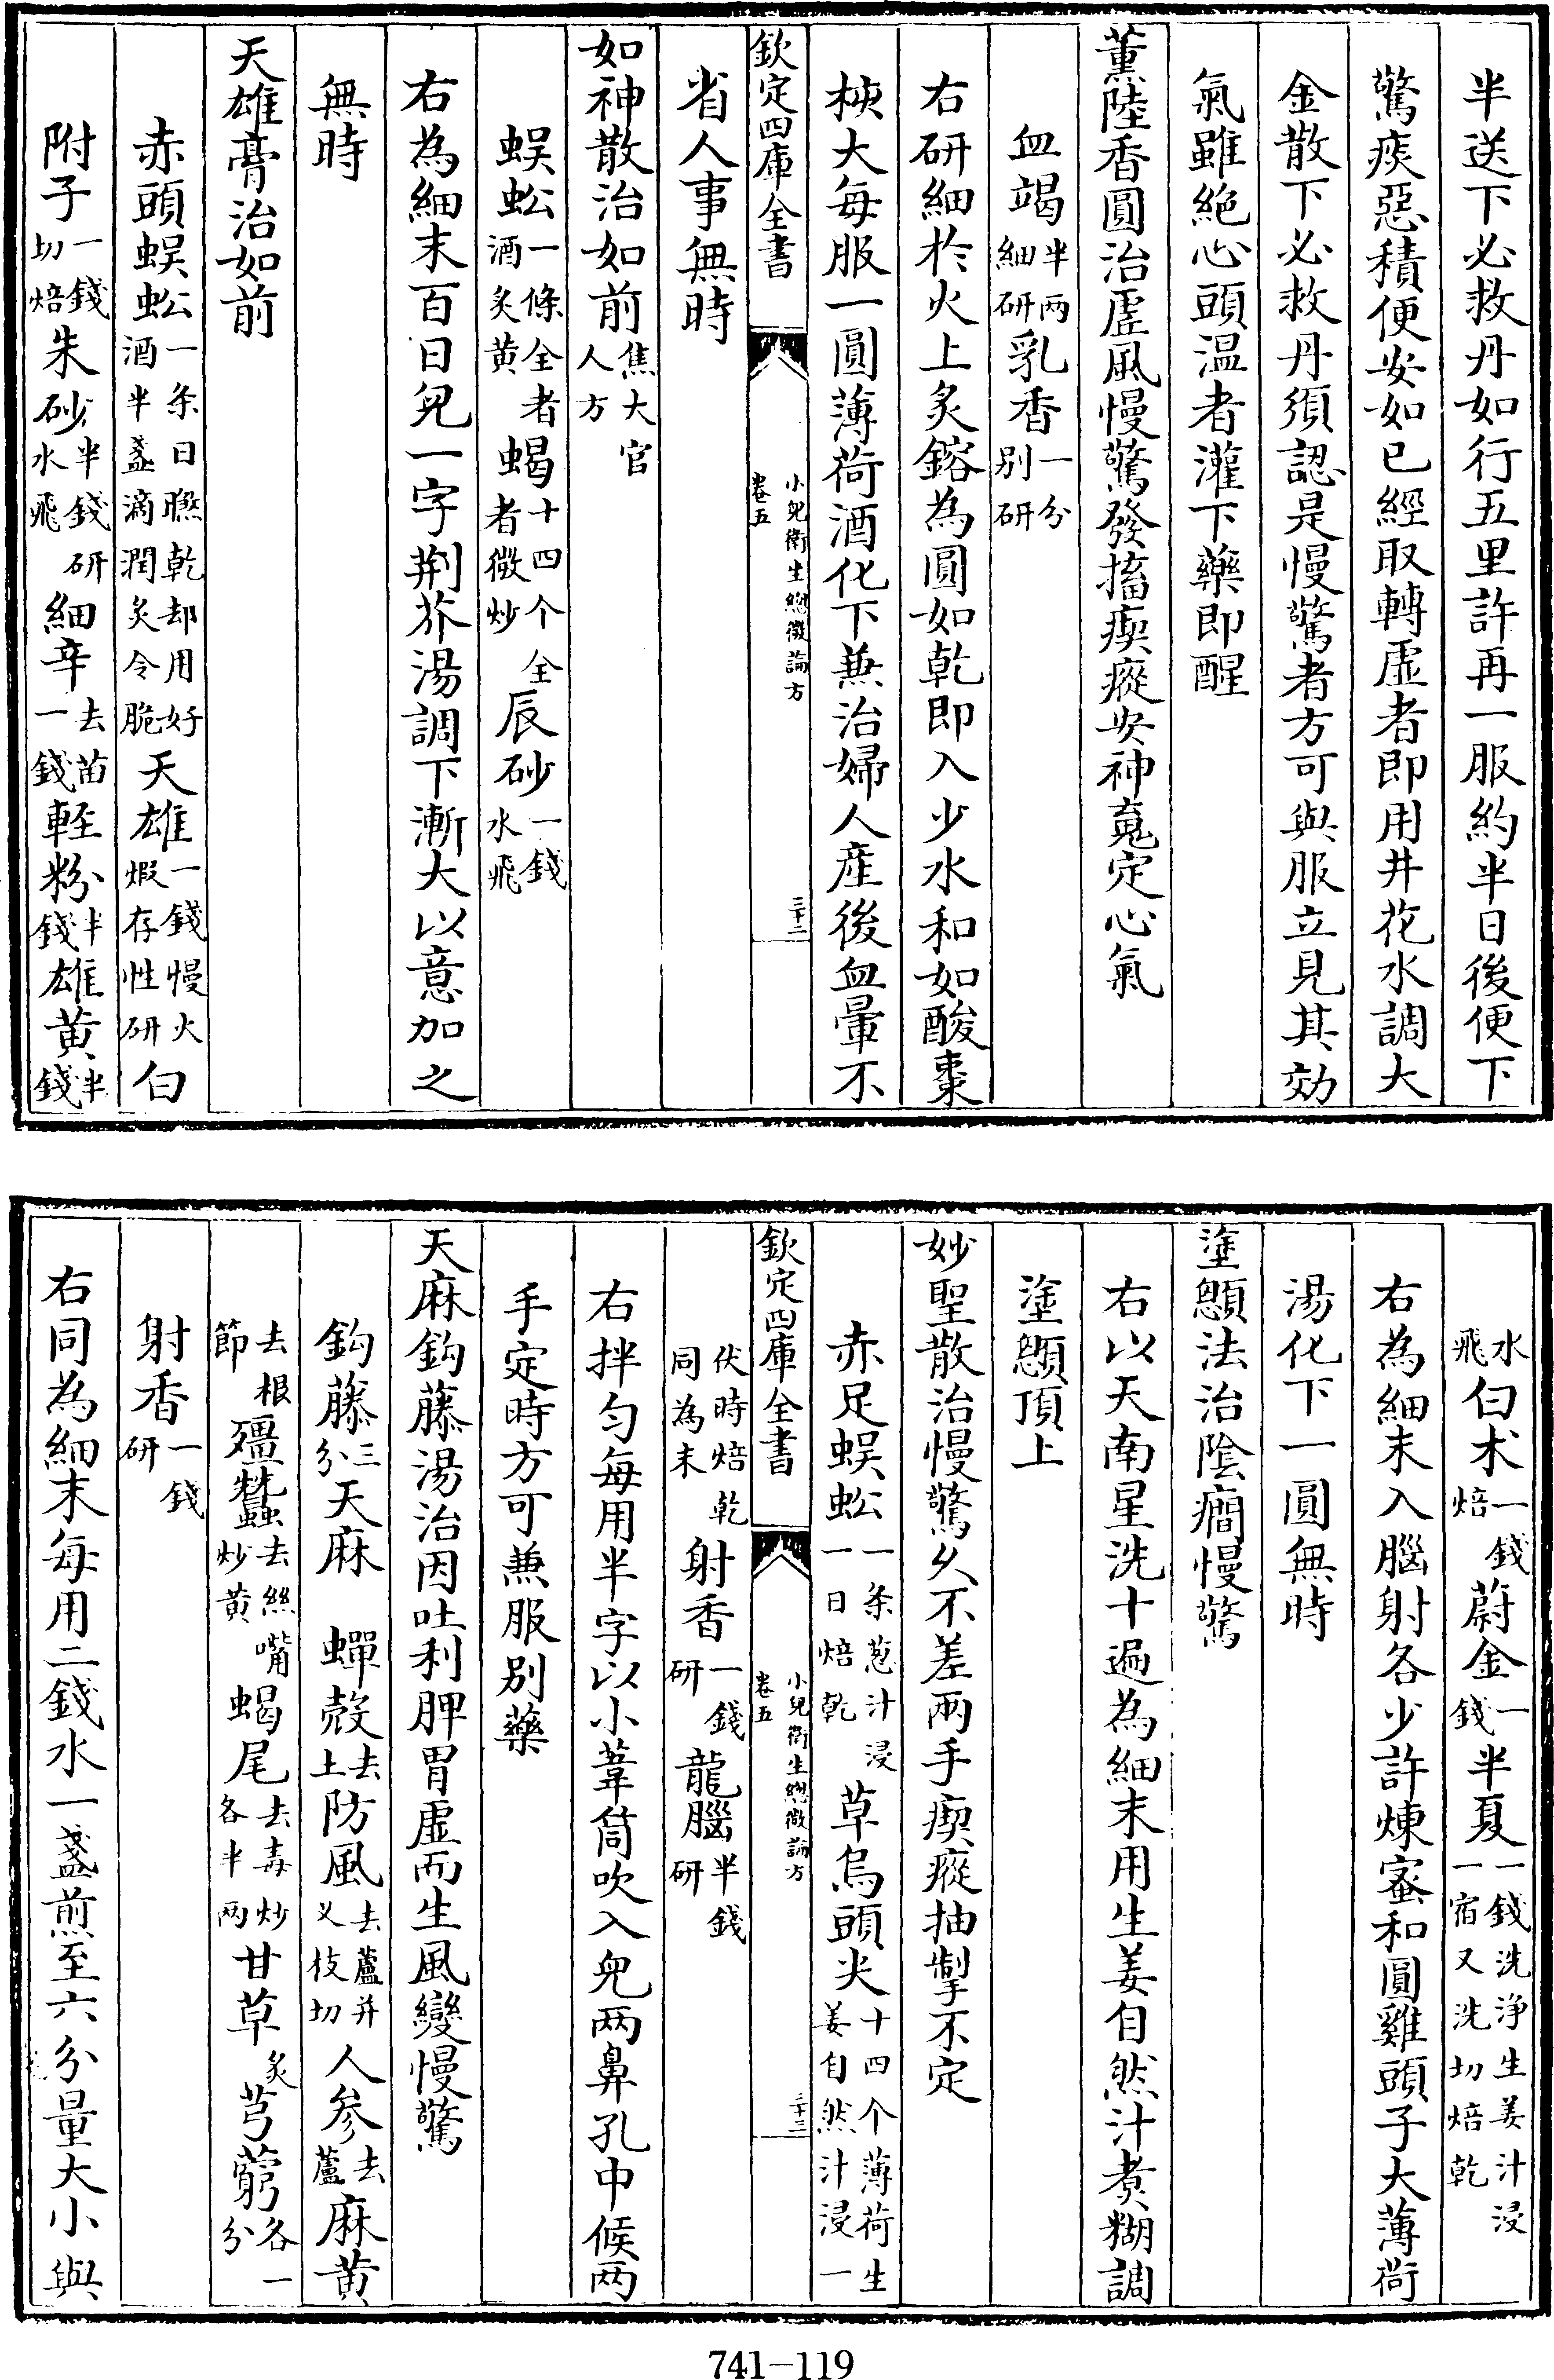 半送下必救丹如行五里許再一服約半日後便下
驚痰惡積便安如已經取轉虛者即用井花水調大
金散下必救丹須認是慢驚者方可與服立見其効
氣雖絶心頭温者灌下藥即醒
薰陸香圓治虛風慢驚發搐瘈瘲安神䰟定心氣
血竭半两細研乳香一分别研
右研細於火上炙鎔為圓如乾即入少水和如酸棗
梜大每服一圓薄荷酒化下兼治婦人産後血暈不
欽定四庫全書 小兒衛生總微論方卷五 三十二
省人事無時
如神散治如前焦大官人方
蜈蚣一條全者酒炙黄蝎十四个全者微炒辰砂一錢水飛
右為細末百日兒一字荆芥湯調下漸大以意加之
無時
天雄膏治如前
赤頭蜈蚣一条日䁱乾却用好酒半盞滴潤炙令脆天雄一錢慢火煆存性研白
附子一錢切焙朱砂半錢研水飛細辛去苗一錢輕粉半錢雄黄半錢
水飛白术一錢焙蔚金一錢半夏一錢洗淨生姜汁浸一宿又洗切焙乾
右為細末入腦射各少許煉蜜和圓雞頭子大薄荷
湯化下一圓無時
塗顖法治陰癇慢驚
右以天南星洗十遍為細末用生姜自然汁煮糊調
塗顖頂上
妙聖散治慢驚久不差兩手瘈瘲抽掣不定
赤足蜈蚣一条葱汁浸一日焙乾草烏頭尖十四个薄荷生姜自然汁浸一
欽定四庫全書 小兒衛生總微論方卷五 三十三
伏時焙乾同為末射香一錢研龍腦半錢研
右拌匀每用半字以小葦筒吹入兒两鼻孔中候两
手定時方可兼服别藥
天麻鈎藤湯治因吐利脾胃虛而生風變慢驚
鈎藤三分天麻 蟬殻去土防風去蘆并义枝切人参去蘆麻黄
去根節殭蠶去絲嘴炒黄蝎尾去毒炒各半两甘草炙芎藭各一分
射香一錢研
右同為細末每用二錢水一盞煎至六分量大小與
741-119